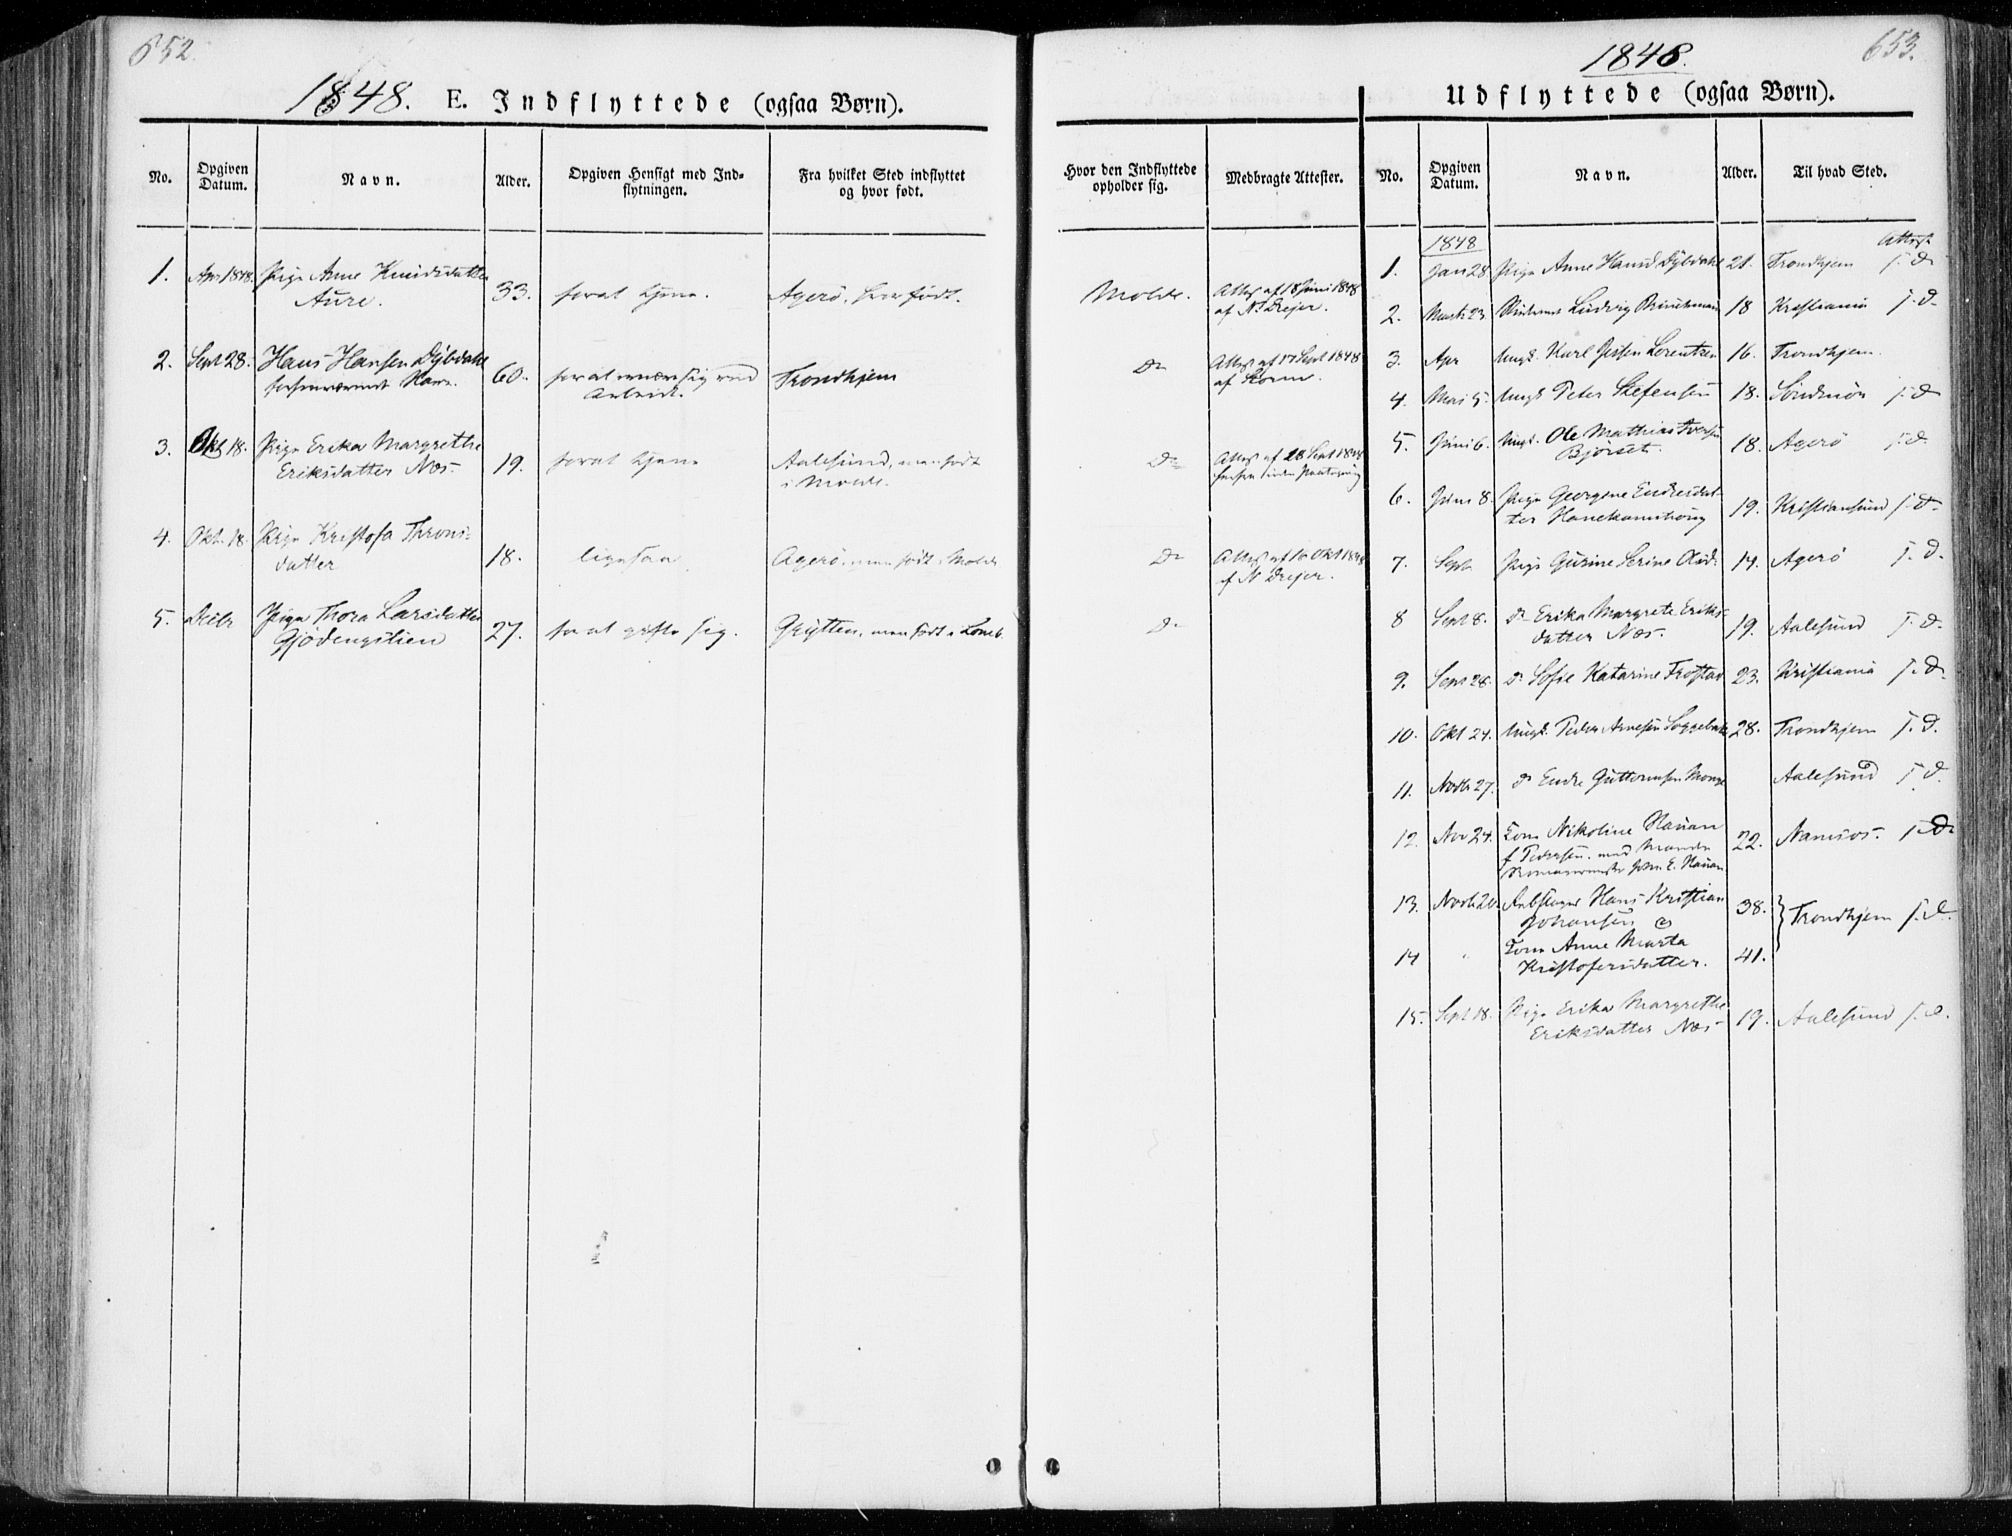 652.
1848. E. Indflyttede (ogsaa Børn).
No. Opgiven Datum. Navn. Alder. Opgiven Hensigt med Indflytningen. Fra hvilket Sted indflyttet og hvor født. Hvor den Indflyttede opholder sig. Medbragte Attester.
1. Apr 1848. Pige Anne Knudsdatter 33. for at tjene. Agerö, hvor födt. Molde. Attest af 18 Juni 1848
Aure. af N. Drejer.
2. Sept 28. Hans Hansen Dybdahl 60. for at ernære sig ved Trondhjem Do Attest af 17 Sept 1848
Arbeide. af Storm.
3. Okt 18. Pige Erika Margrethe 19. for at tjene Aalesund, men födt Do Attest af 28 Sept 1848
Eriksdatter Næs i Molde.
4. Okt. 18. Pige Kristofa Throns- 18. ligesaa Agerö, men födt i Molde Do Attest af 16 Okt 1848
datter af N. Drejer.
5. Decbr Pige Thora Larsdatter 27. for at gifte sig. Grytten, men födt i Lom Do
Gjödengslien
653.
1848.
Udflyttede (ogsaa Børn).
No. Opgiven Datum. Navn. Alder. Til hvad Sted.
1848 Attest
1. Jan 28. Pige Anne Hansd. Dybdahl 21. Trondhjem s. D.
2. Marts 23. Ludvig 18 Kristiania s. D.
3. Apr Ungk. Karl Lorentzen 16. Trondhjem.
4. Mai 5. Ungk. Peter Stefensen 18. Söndmör s. D.
5. Juni 6. Ungk. Ole Mathias Iversen 18. Agerö s. D.
Bjørset.
6. Juni 8. Pige Georgine Endresdat- 19. Kristiansund s. D.
ter Hanekamhoug
7. Sept Pige Gurine Serine 14. Agerö s. D.
8 Sept 8. Do Erika Margrete Eriks- 19. Aalesund s. D.
datter Næs.
9. Sept 28. Do Sofie Katarine Frostad 23. Kristiania s. D.
10. Okt 24. Ungk. Peder Arnesen Soggebakke 28. Trondhjem s. D.
11. Novbr 27. Do Endre Guttormsen Monge Aalesund s. D.
12. Nov 24. Kone Nikoline Hauan 22. Namsos. s. D.
f. Pedersen. med Manden
E. Hauan
13. Novbr 20. Hans Kristian 38. Trondhjem s. D.
Johansen &
14 " Kone Anne Marta 41.
Kristofersdatter.
15. Sept 18. Pige Erika Margrethe 19. Aalesund s. D.
Eriksdatter Næs